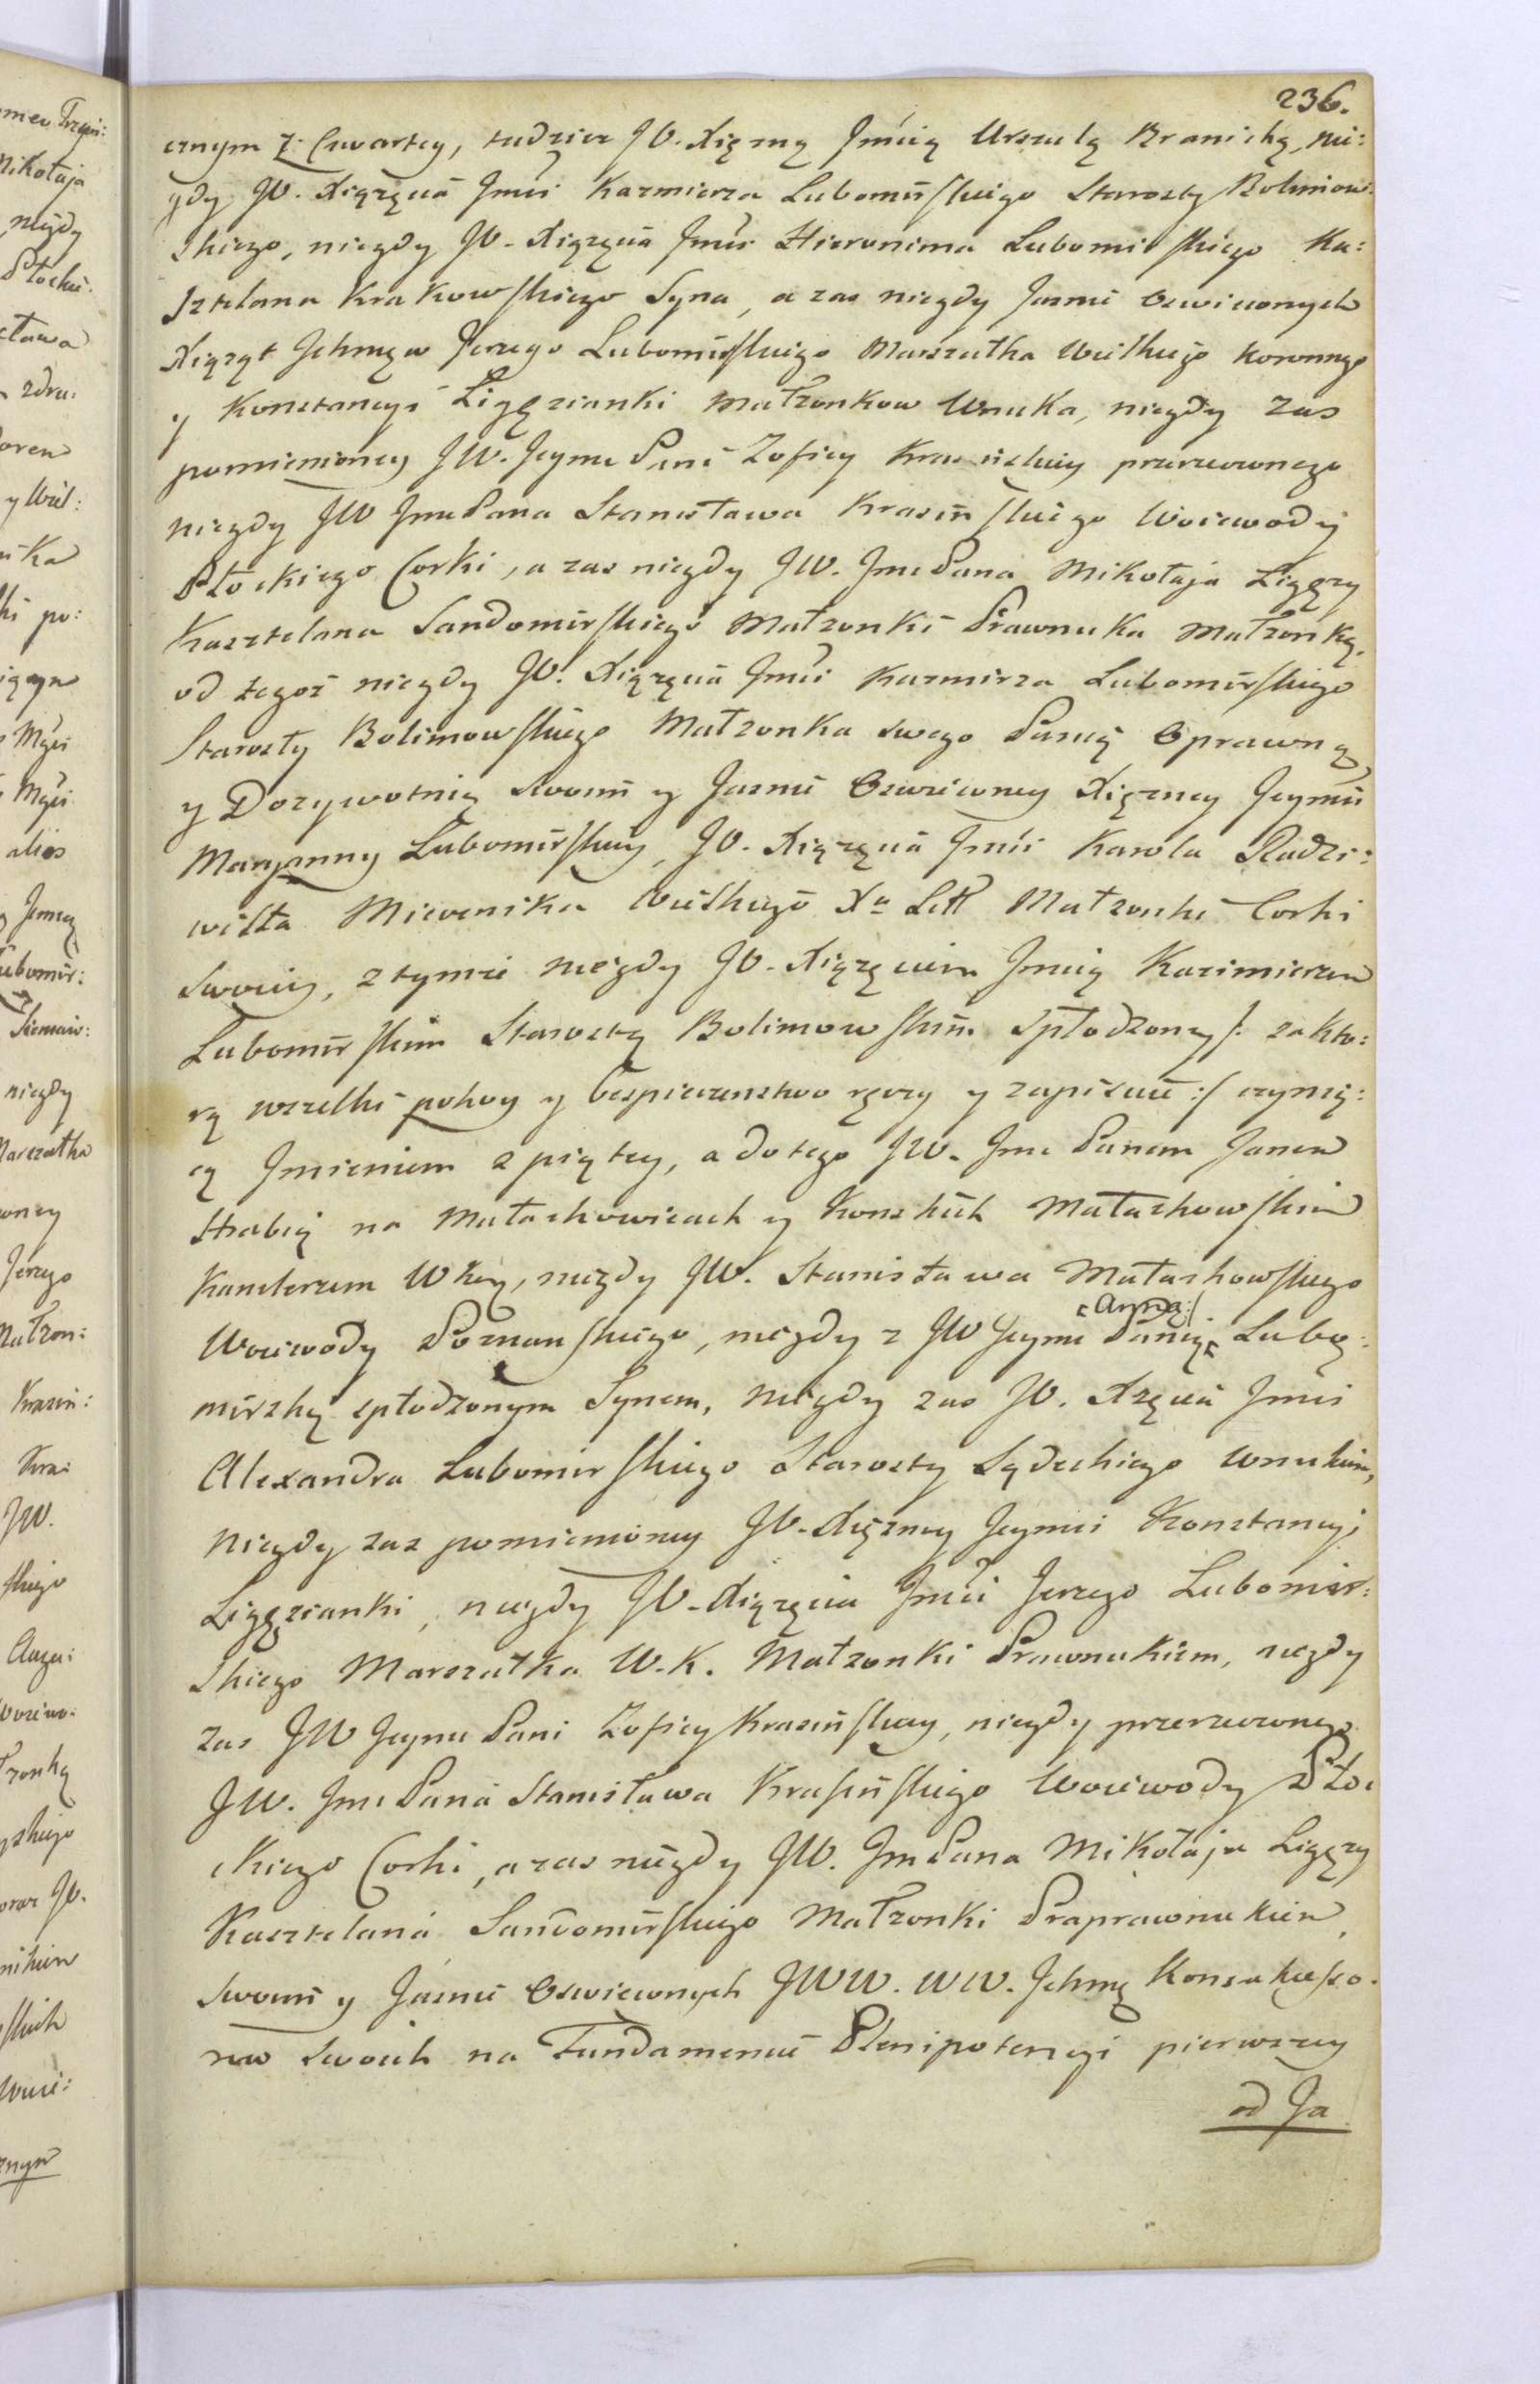 236.
cznym z Czwartey, tudziez JO. Xięzną Jmcią Urszulą Branicką, nie:
gdy JO. Xiązęcia Jmci Kazmierza Lubomirskiego Starosty Bolimow:
skiego, niegdy JO. Xiązęcia Jmci Hieronima Lubomirskiego Ka:
sztelana Krakowskiego Syna, a zas niegdy Jasnie Oswieconych
Xiąząt Ichmęw Jerzego Lubomirskiego Marszałka Wielkiego Koronnego
y Konstancyi Ligęzianki Małzonkow Wnuka, niegdy zas
pomienioney JW. Jeymc Pani Zofiey Krasinskiey przerzeconego
niegdy JW Jmc Pana Stanisława Krasinskiego Woiewody
Płockiego Corki, a zas niegdy JW. Jmc Pana Mikołaja Ligęzy
Kasztelana Sandomirskiego Małzonki Prawnuka Małzonką,
od tegoz niegdy JO. Xiązęcia Jmci Kazmirza Lubomirskiego
Starosty Bolimowskiego Małzonka swego Panią Oprawną
y Dozywotnią swoim y Jasnie Oswieconey Xięzney Jeymci
Maryanny Lubomirskiey, JO. Xiązęcia Jmci Karola Radzi:
wiłła Miecznika Wielkiego Xa Litt Małzonki Corki
Swoiey, z tymze niegdy JO. Xiązęciem Jmcią Kazimierzem
Lubomirskim Starostą Bolimowskim Spłodzoney /: za kto:
rą wszelki pokoy y bespieczenstwo ręczy y zapisuie :/ czynią:
cą Imieniem z piątey, a do tego JW. Jmc Panem Janem
Hrabią na Małachowicach y Konskich Małachowskim
Kanclerzem WKor, niegdy JW. Stanisława Małachowskiego
Woiewody Poznanskiego, niegdy z JW Jeymc Panią Anną Lubo:
mirską spłodzonym Synem, niegdy zas JO. Xzęcia Jmci
Alexandra Lubomirskiego Starosty Sądeckiego Wnukiem,
niegdy zas pomienioney JO. Xięzney Jeymci Konstancyi
Ligęzianki, niegdy JO. Xiązęcia Jmci Jerzego Lubomir:
skiego Marszałka W. K. Małzonki Prawnukiem, niegdy
zas JW Jeymc Pani Zofiey Krasinskiey, niegdy przerzeconego
JW. Jmc Pana Stanisława Krasinskiego Woiewody Pło:
ckiego Corki, a zas niegdy JW. Jmc Pana Mikołaja Ligęzy
Kasztelana Sandomirskiego Małzonki Praprawnukiem,
swoim y Jasnie Oswieconych JWW. WW. Ichmę Konsukceso:
row swoich na Fundamencie Plenipotencyi pierwszey
od Ja